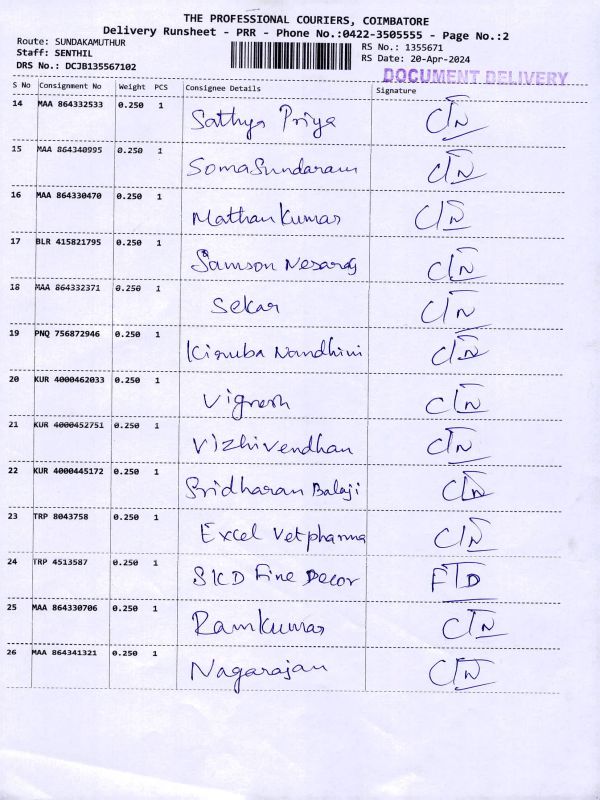 THE PROFESSIONAL COURIERS, COIMBATORE
Delivery Runsheet - PRR - Phone No.:0422-3505555 - Page No.:2
Route: SUNDAKAMUTHUR
Staff: SENTHIL
DRS No.: DCJB135567102
RS No.: 1355671
RS Date: 20-Apr-2024
DOCUMENT DELIVERY
S No Consignment No Weight PCS Consignee Details Signature
14 MAA 864332533 0.250 1 Sathya Priya
15 MAA 864340995 0.250 1 SomaSundaram
16 MAA 864330470 0.250 1 Mathan Kumar
17 BLR 415821795 0.250 1 Samson Nesaraj
18 MAA 864332371 0.250 1 Sekar
19 PNQ 756872946 0.250 1 Kiruba Nandhini
20 KUR 4000462033 0.250 1 Vignesh
21 KUR 4000452751 0.250 1 Vizhivendhan
22 KUR 4000445172 0.250 1 Sridharan Balaji
23 TRP 8043758 0.250 1 Excel Vetpharma
24 TRP 4513587 0.250 1 SKD Fine Decor FTD
25 MAA 864330706 0.250 1 Ramkumar
26 MAA 864341321 0.250 1 Nagarajan